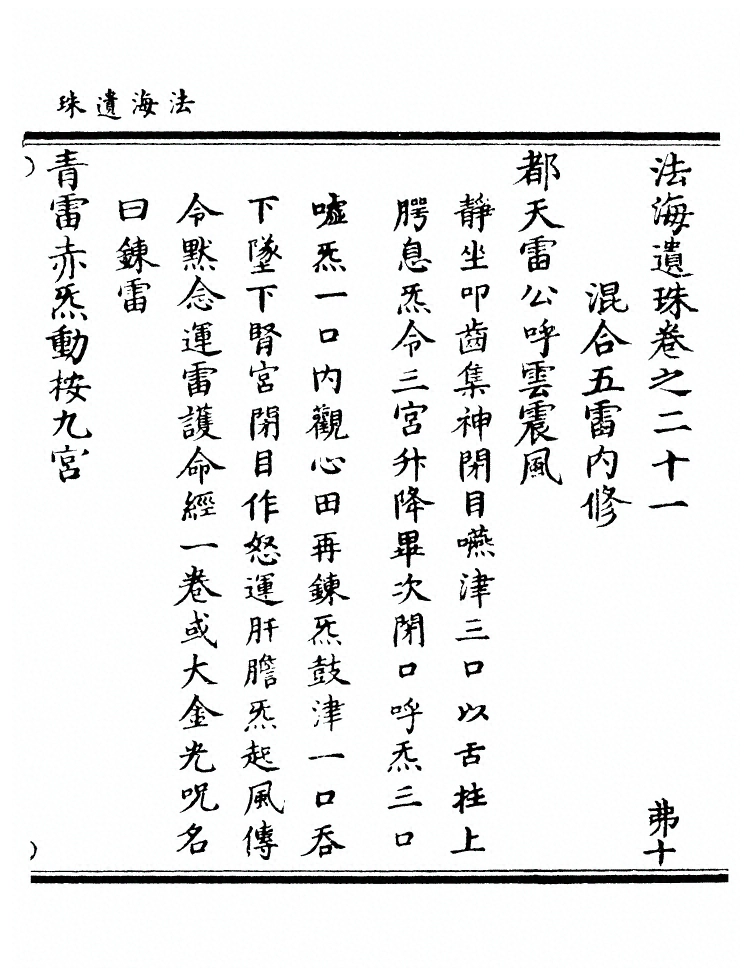 法海遺珠
法海遺珠卷之二十一 弗十
混合五雷內修
都天雷公呼雲震風
靜坐叩齒集神閉目嚥津三口以舌拄上
腭息炁令三宮升降畢次閉口呼炁三口
噓炁一口內觀心田再鍊炁鼓津一口吞
下墜下腎宮閉目作怒運肝膽炁起風傳
令默念運雷護命經一卷或大金光呪名
曰鍊雷
青雷赤炁動按九宮